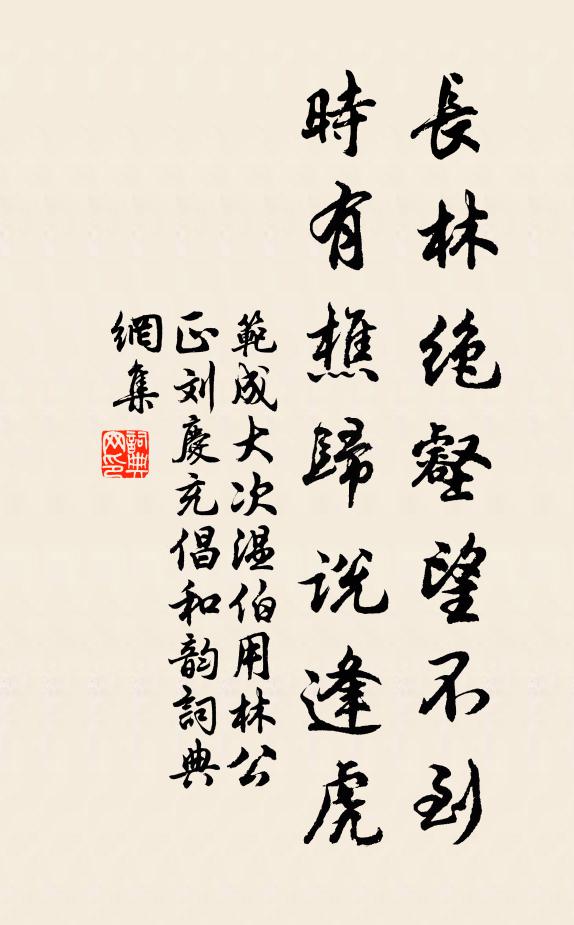 長林绝壑望不到
時有樵歸説逢虎
範成大次温伯用林公
正刘慶充倡和韵詞典
網集
詞典
网印